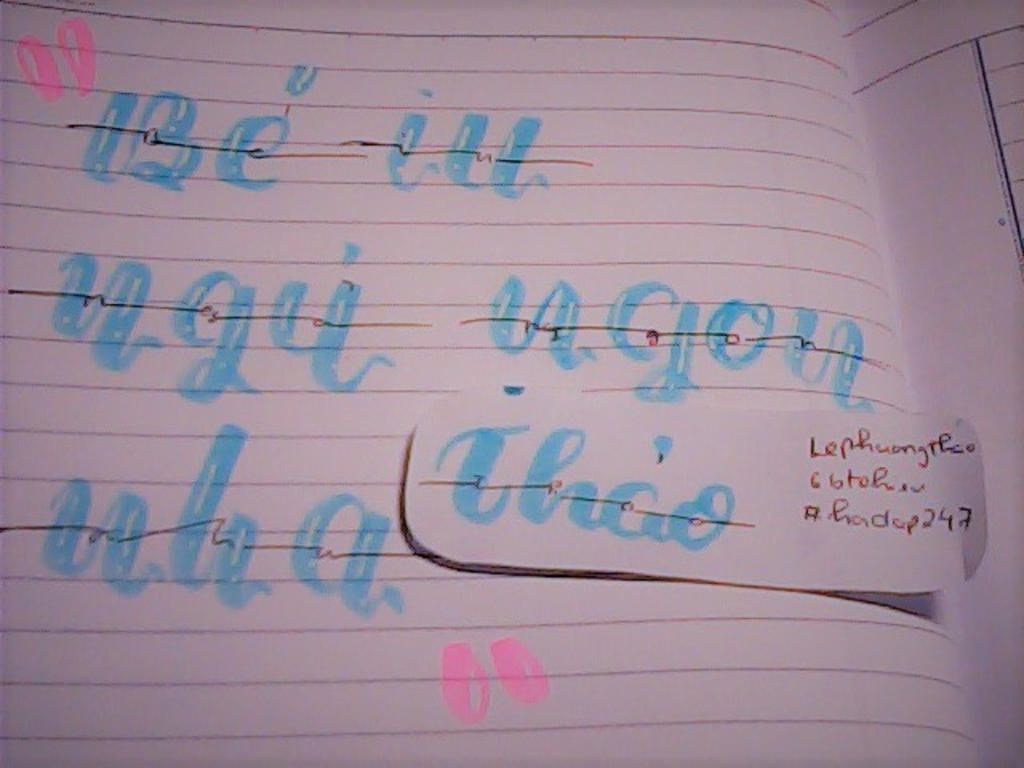 Bé iu
ngủ ngon
nha Thảo
Lephuongthao
#hoidap247